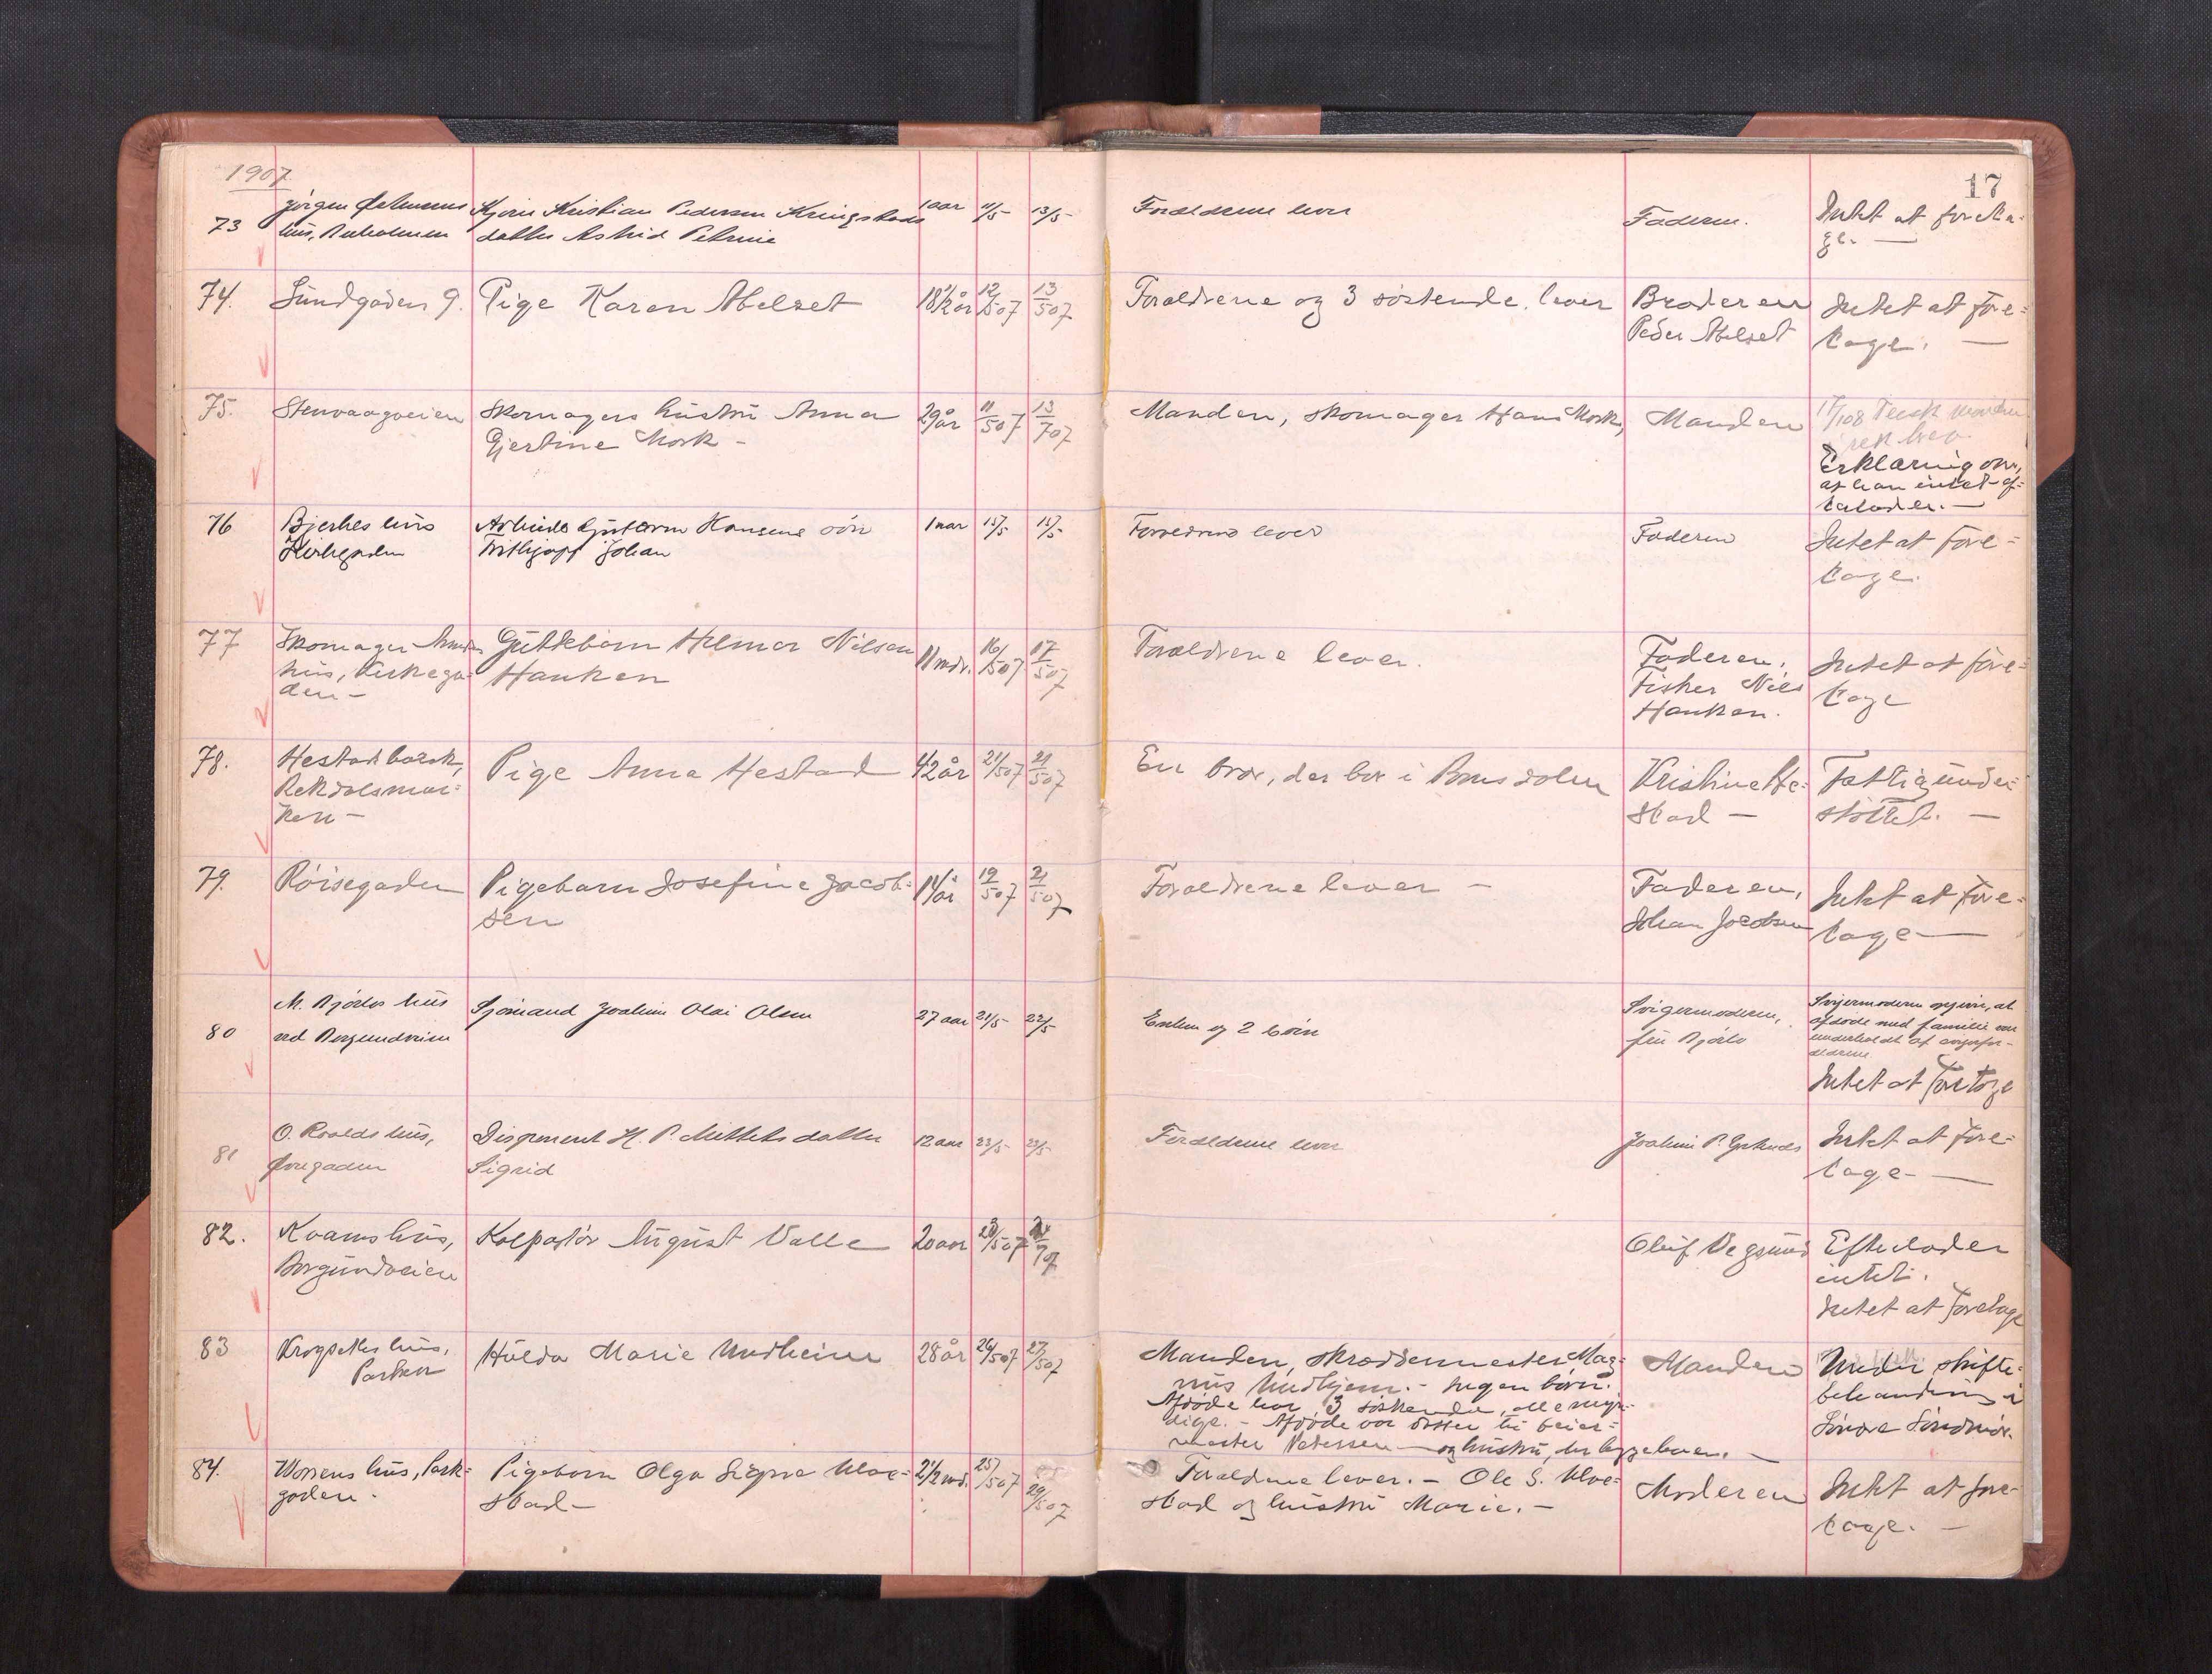 1907.
17
73
hus,
Kjøre Kristian Pedersen
datter Astrid Petrine
1 aar 11/5 13/5
Forældrene lever
Faderen.
Intet at foreta=
ge. —
74. Sundgaden 9. Pige Karen Abelset 18 1/2 år 12/507 13/507
Forældrene og 3 söskende lever
Broderen
Peder Abelset
Intet at fore=
tage. —
75. Stenvaagveien
Skomagers hustru Anna
Gjertine Mork -
29 år 11/507 13/707
Manden, skomager Hans Mork,
Manden
17/108
Erklæring om,
at han intet ef=
terlader. —
76 Bjerkes hus
Kirkegaden
Arbeider Hansens sön
Johan
1 aar 15/5 15/5
Forældrene lever
Faderen
Intet at fore=
tage.
77 Skomager
hus, Kirkega=
den -
Guttebarn Hilmar Nilsen
Hanken
11 mdr. 16/507 17/507
Forældrene lever.
Faderen,
Fisker Nils
Hanken.
Intet at fore=
tage
78. Hestad barak,
Rekdalsmar=
ken -
Pige Anna Hestad 42 år 21/507 21/507
En bror, der bor i Romsdalen
Kristine He=
stad -
Fattigunder=
støttet. —
79. Röisegaden
Pigebarn Josefine Jacob=
sen
14 år 19/507 21/507
Forældrene lever -
Faderen,
Johan Jacobsen
Intet at fore=
tage —
80
M. Bjørlos hus
ved Borgundveien
Sjømand Joakim Olai Olsen
27 aar 21/5 22/5
Enken og 2 børn
Svigermoderen,
fru Bjørlo
Svigermoderen opgiver, at
afdøde med familie var
underholdt af svigerfor-
ældrene
Intet at foretage
81
O. Roalds hus,
Øvregaden
Disponent H. P. datter
Sigrid
12 aar 23/5 23/5
Forældrene lever
Joakim P.
Intet at fore=
tage —
82.
Kvams hus,
Borgundveien
Kolportør August Valle
20 aar
Oluf Vegsund
Efterlader
intet.
Intet at foretage
83 hus,
Parken
Hulda Marie Undheim
28 år 26/507 27/507
Manden, skræddermester Mag=
nus Undhjem. - Ingen börn.
Afdøde har 3 söskende, alle myn=
dige. - Afdøde var datter til
mester Petersen — og hustru,
Manden
Under skifte=
behandling i
Söndre Söndmör.
84. hus, Park=
gaden.
Pigebarn Olga
stad -
2 1/2 md. 25/507 29/507
Forældrene lever. - Ole S.
stad og hustru Marie. -
Moderen
Intet at fore-
tage. —